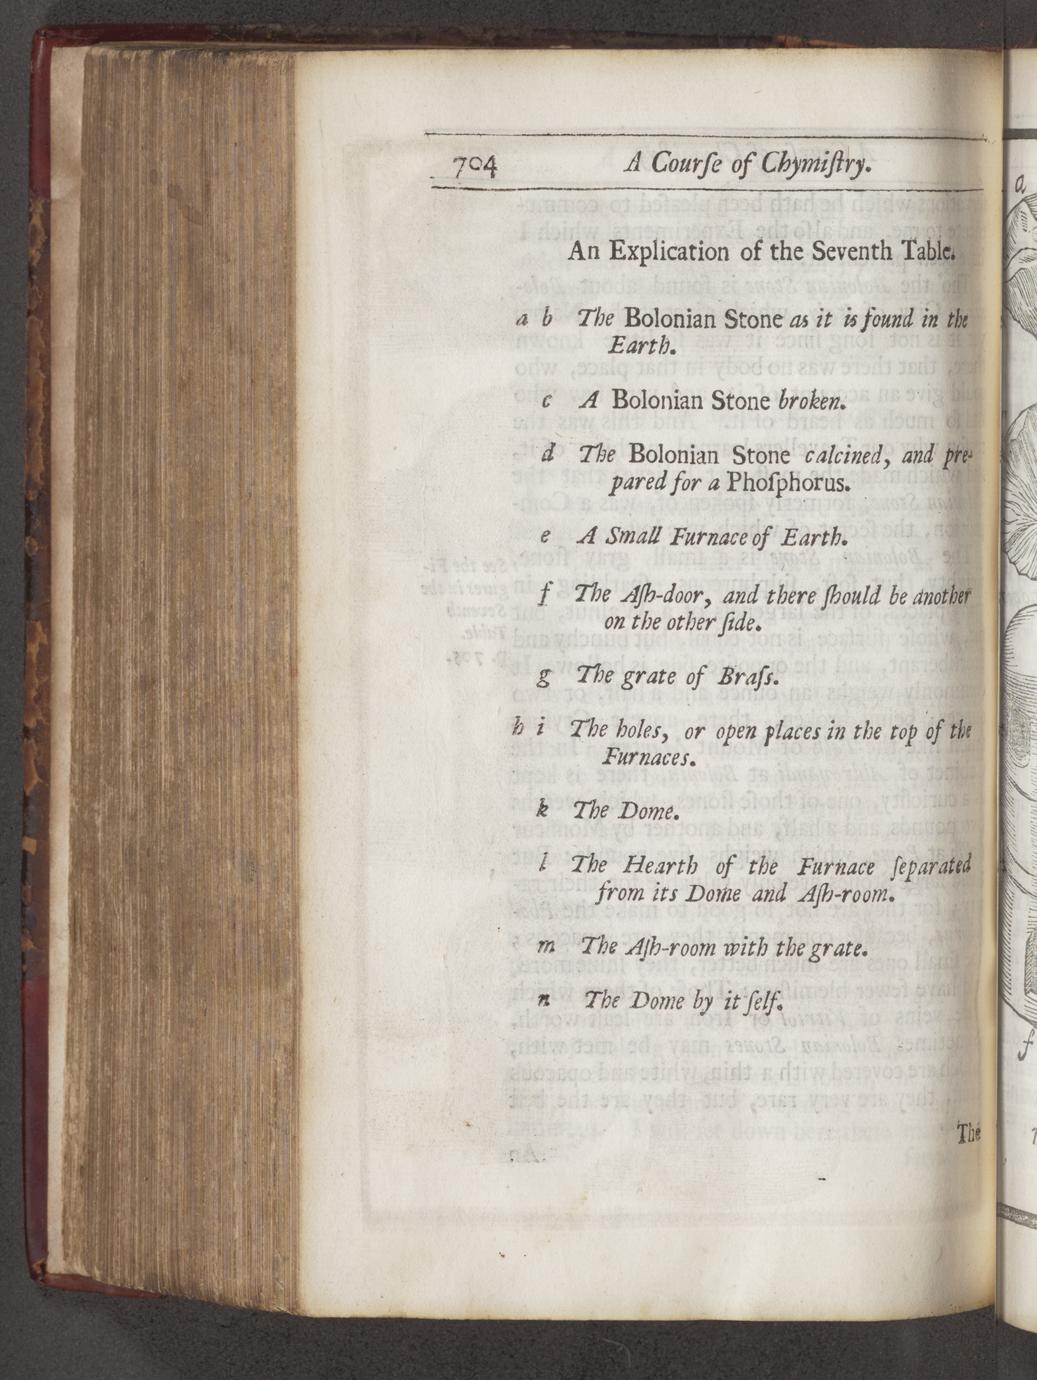 704 A Courſe of Chymiſtry.
An Explication of the Seventh Table.
a b The Bolonian Stone as it is found in the
Earth.
c A Bolonian Stone broken.
d The Bolonian Stone calcined, and pre-
pared for a Phoſphorus.
e A Small Furnace of Earth.
f The Aſh-door, and there ſhould be another
on the other ſide.
g The grate of Braſs.
h i The holes, or open places in the top of the
Furnaces.
k The Dome.
l The Hearth of the Furnace ſeparated
from its Dome and Aſh-room.
m The Aſh-room with the grate.
n The Dome by it ſelf.
The
a
f